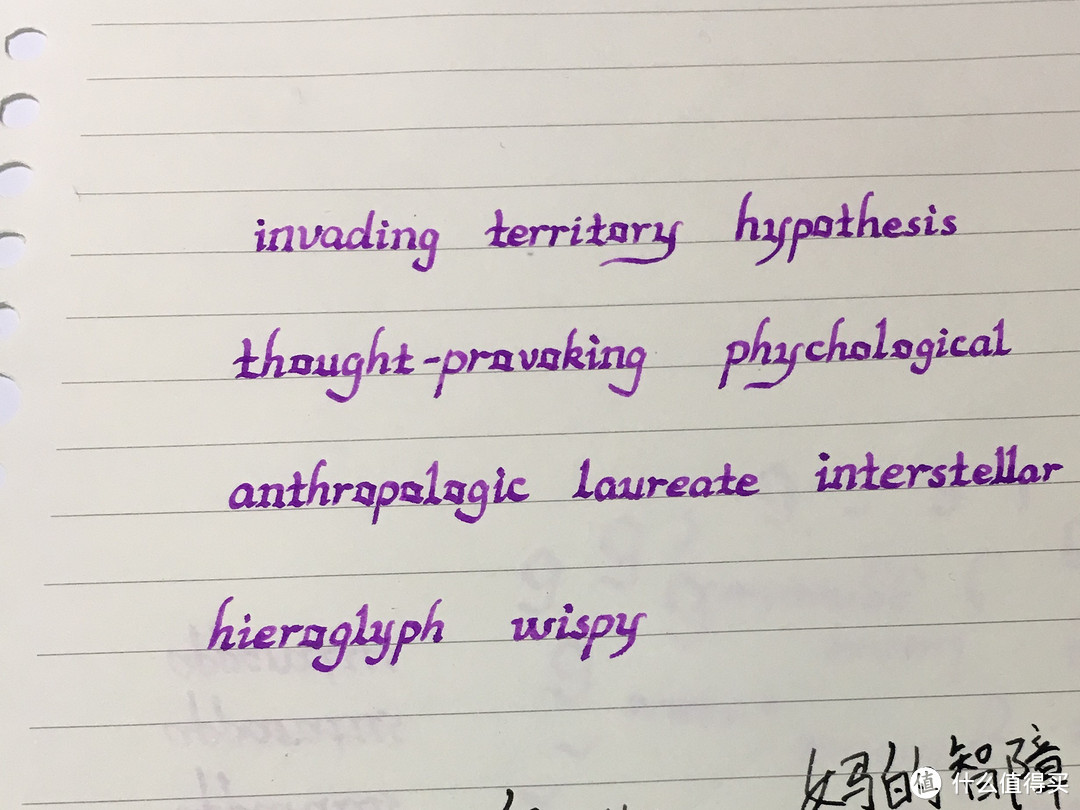 invading territory hypothesis
thought-provoking phychological
anthropologic laureate interstellar
hieroglyph wispy
妈的智障
值 什么值得买